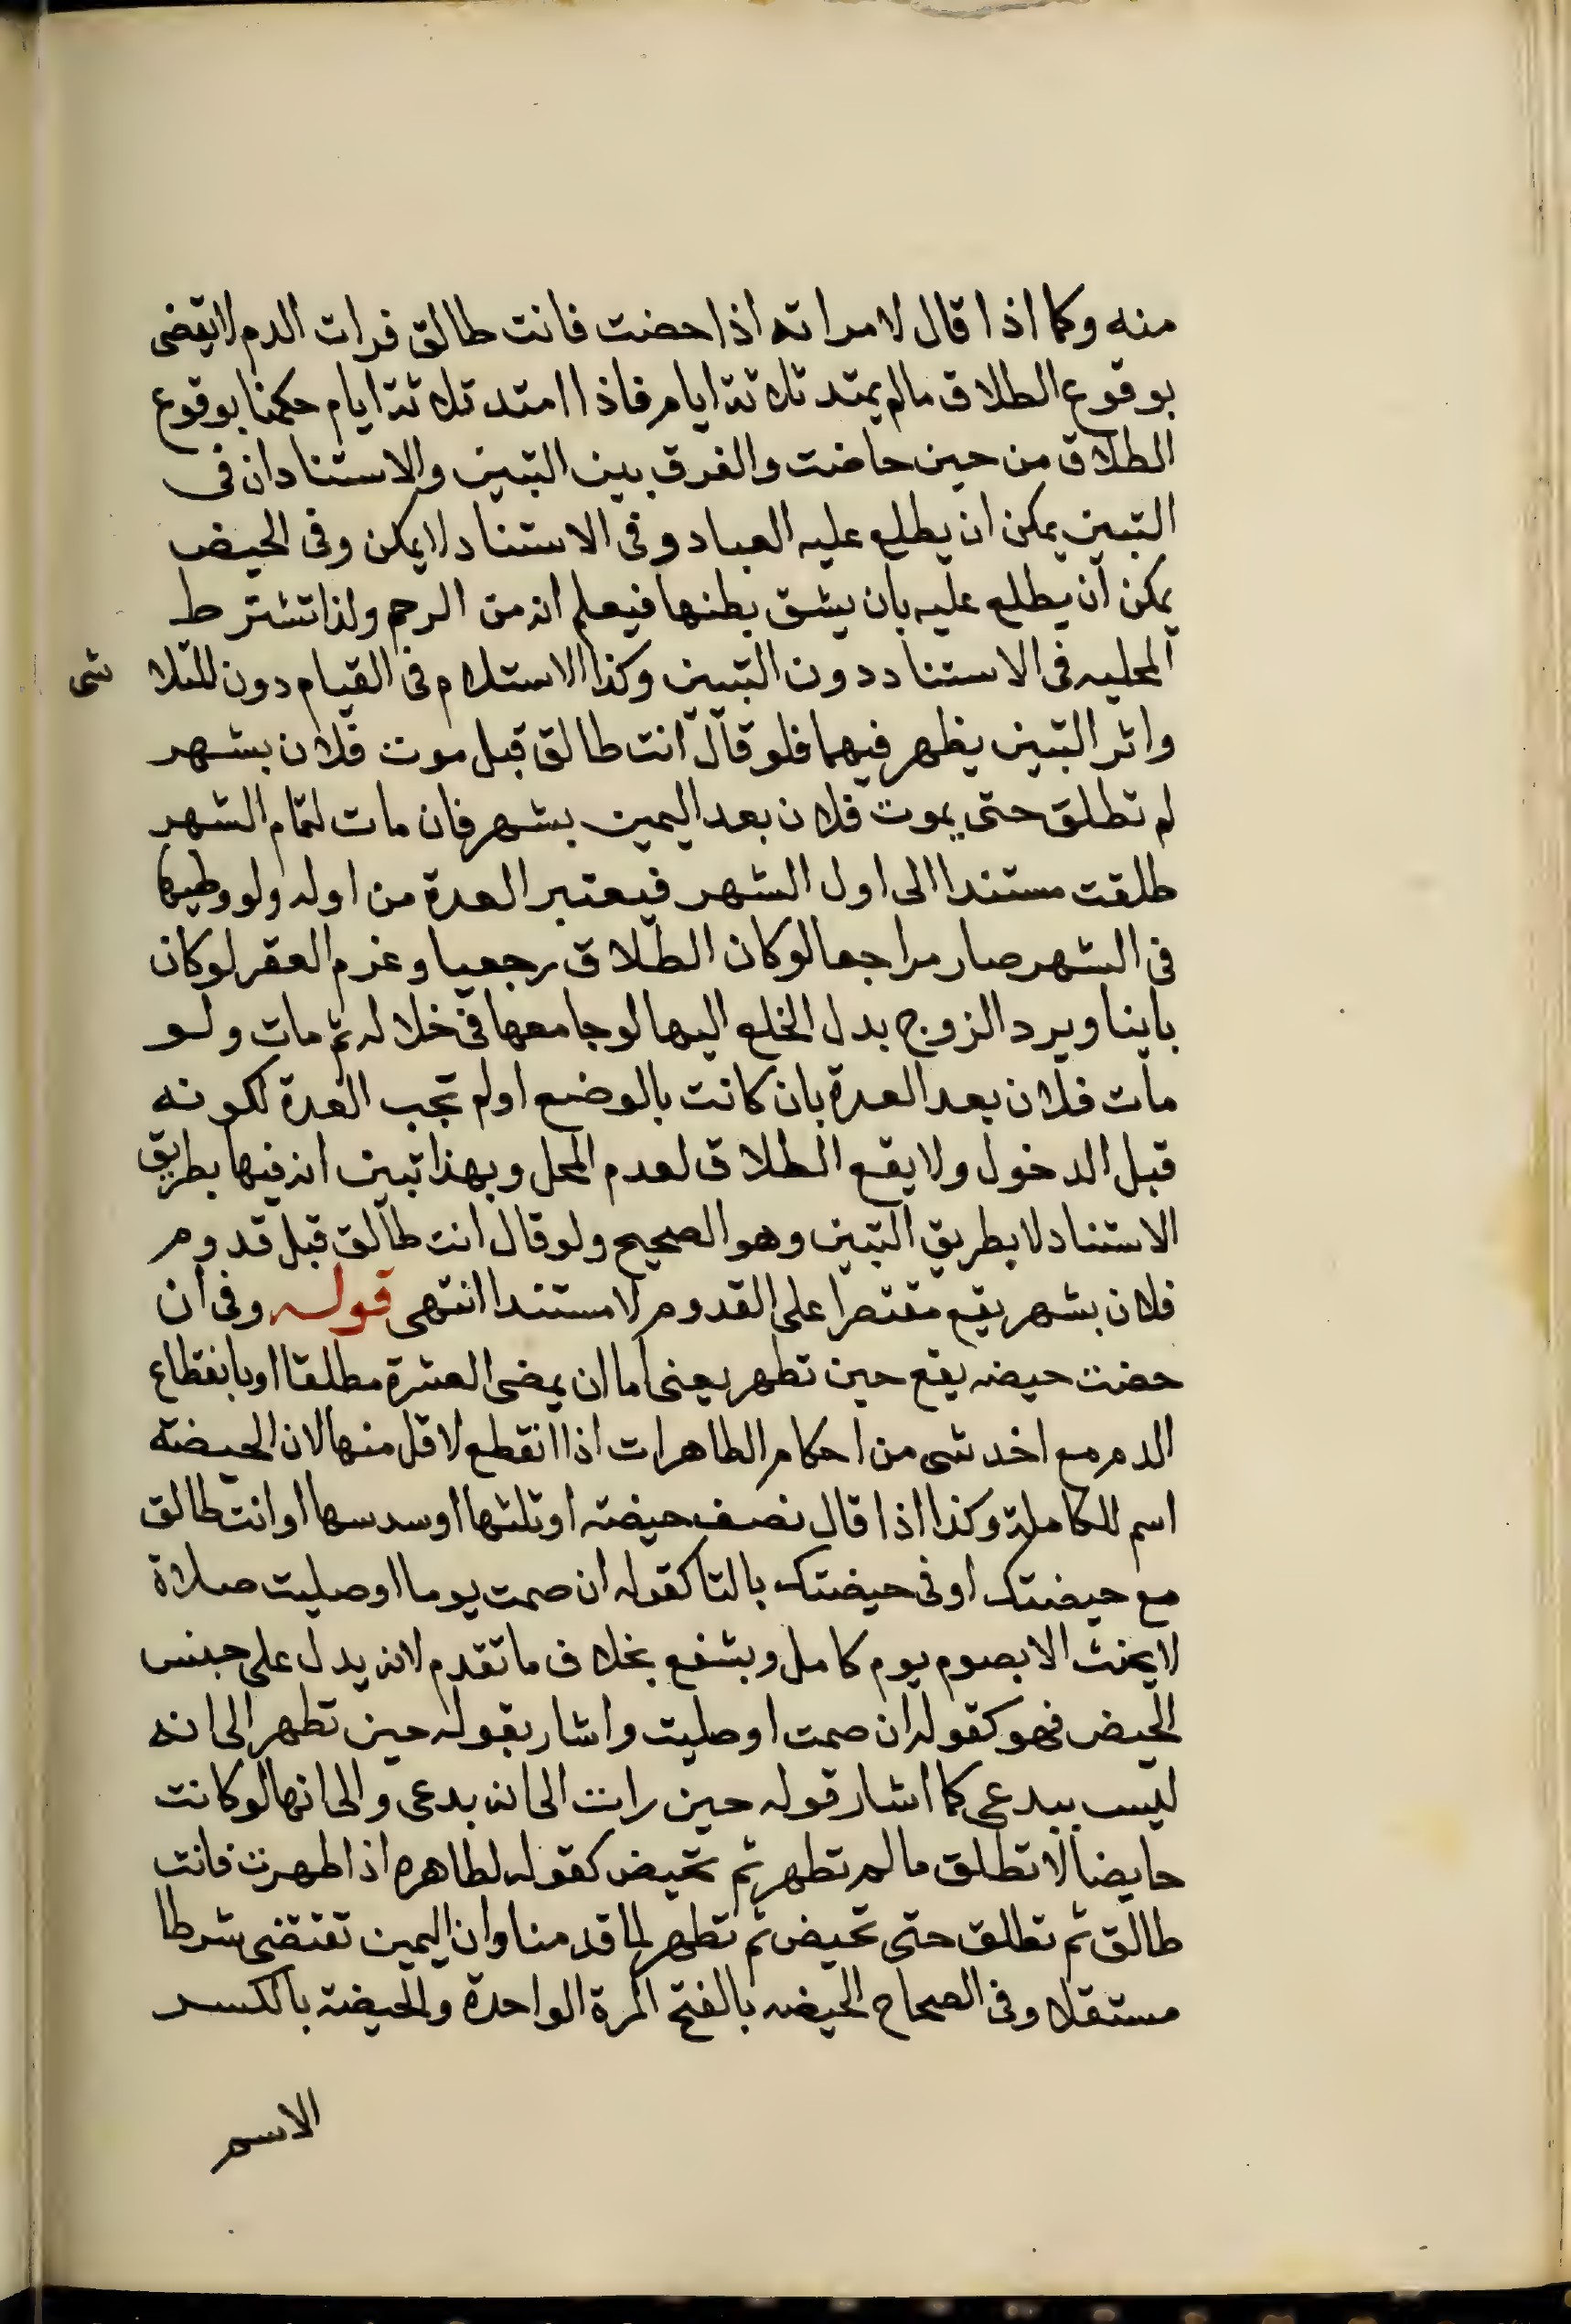 منه وكما اذا قال لامراته اذا حضت فانت طالق فرات الدم لايقضى
بوقوع الطلاق مالم يمتد ثلاثة ايام فاذا امتد ثلاثة ايام حكمنا بوقوع
الطلاق من حين حاضت والفرق بين التبين والاستناد ان فى
التبين يمكن ان يطلع عليه العباد وفى الاستناد لا يمكن وفى الحيض
يمكن ان يطلع عليه بان يشق بطنها فيعلم انه من الرحم ولذا تشترط
المحليه فى الاستناد دون التبين وكذا الاستلام فى القيام دون للتلا شى
واثر التبين يظهر فيهما فلو قال انت طالق قبل موت فلان بشهر
لم تطلق حتى يموت فلان بعد اليمين بشهر فان مات لتمام الشهر
طلقت مستندا الى اول الشهر فيعتبر العدة من اوله ولو وطيها
فى الشهر صار مراجعا لو كان الطلاق رجعيا وغرم العقر لو كان
باينا ويرد الزوج بدل الخلع اليها لو جامعها فى خلاله ثم مات ولو
مات فلان بعد العدة بان كانت بالوضع اولم تجب العدة لكونه
قبل الدخول ولا يقع الطلاق لعدم المحل وبهذا تبين انه فيها بطريق
الاستناد لا بطريق التبين وهو الصحيح ولو قال انت طالق قبل قدوم
فلان بشهر يقع مقتصرا على القدوم لا مستندا انتهى قوله وفى ان
حضت حيضه يقع حين تطهر يعنى اما ان يمضى العشرة مطلقا او بانقطاع
الدم مع اخد شى من احكام الطاهرات اذا انقطع لاقل منها لان الحيضة
اسم للكاملة وكذا اذا قال نصف حيضته او ثلثها او سدسها او انت طالق
مع حيضتك او فى حيضتك بالتا كقوله ان صمت يوما او صليت صلاة
لا يحنث الا بصوم يوم كامل وبشفع بخلاف ما تقدم لانه يدل على جنس
الحيض فهو كقوله ان صمت او صليت واشار بقوله حين تطهر الى انه
ليس ببدعى كما اشار قوله حين رات الى انه بدعى والى انها لو كانت
حايضا لا تطلق مالم تطهر ثم تحيض كقوله لطاهره اذا طهرت فانت
طالق ثم تطلق حتى تحيض ثم تطهر لما قدمنا وان اليمين تقتضى شرطا
مستقلا وفى الصحاح الحيضه بالفتح المرة الواحدة والحيضة بالكسر
الاسم